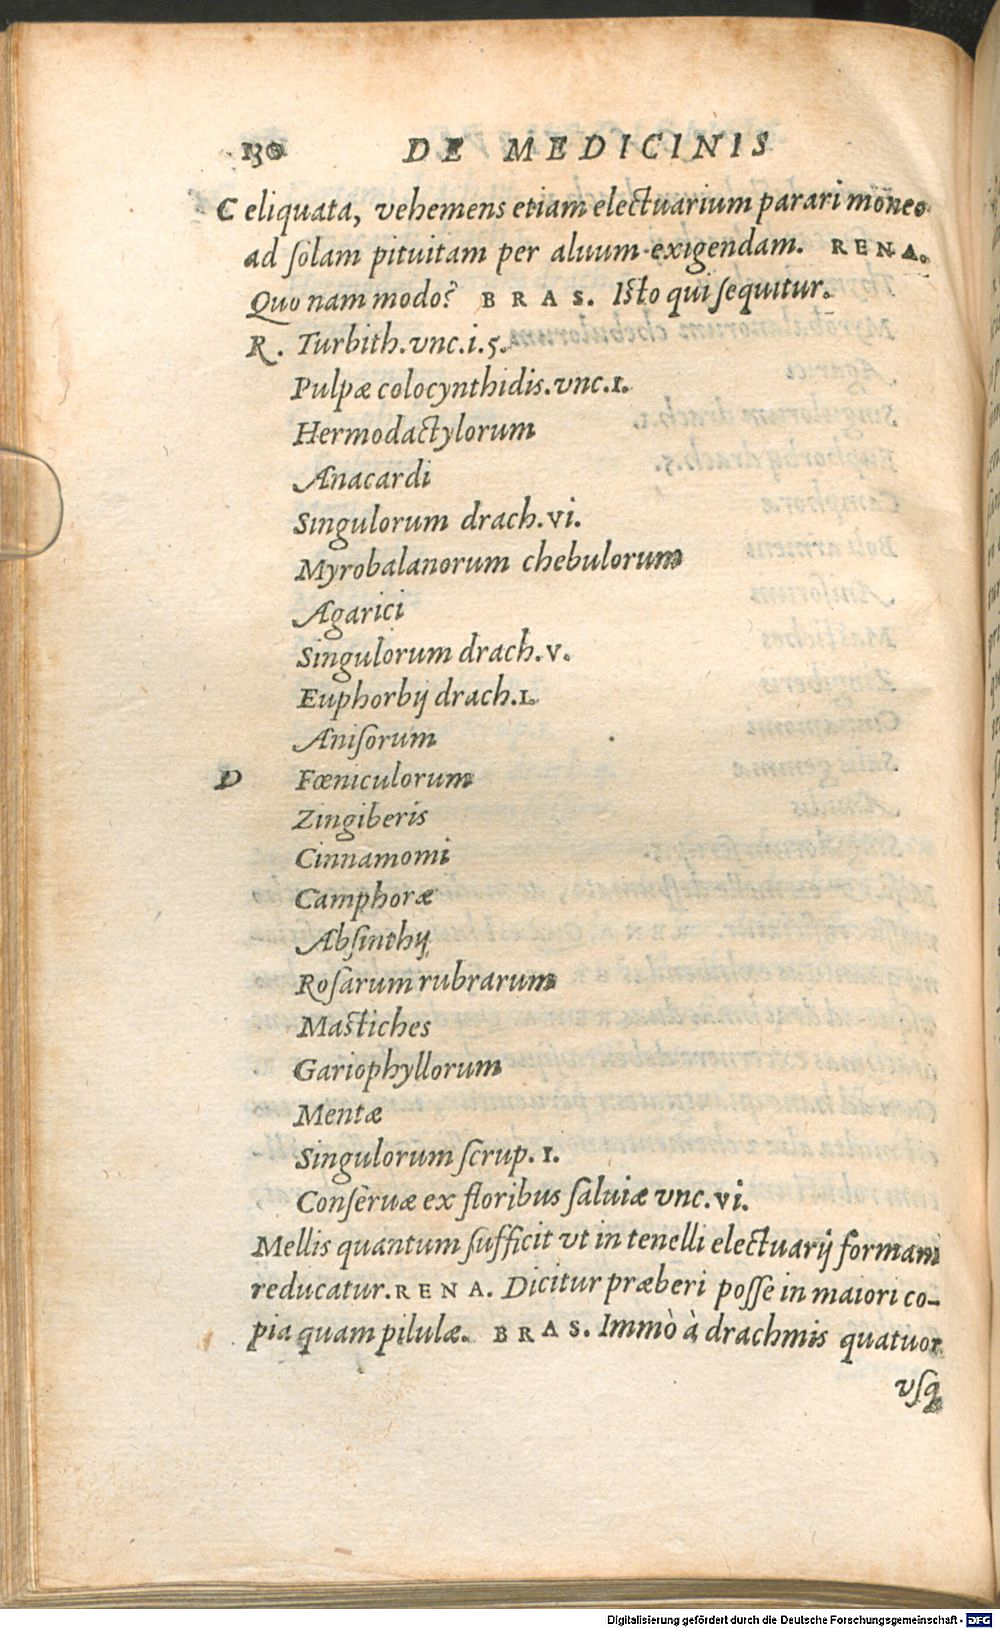 130 DE MEDICINIS
C eliquata, vehemens etiam electuarium parari moneo
ad ſolam pituitam per aluum exigendam. RENA.
Quo nam modo? BRAS. Iſto qui ſequitur.
R. Turbith.vnc.i.s.
Pulpæ colocynthidis.vnc.1.
Hermodactylorum
Anacardi
Singulorum drach.vi.
Myrobalanorum chebulorum
Agarici
Singulorum drach.v.
Euphorbij drach.1.
Aniſorum
D Fœniculorum
Zingiberis
Cinnamomi
Camphoræ
Abſinthij
Roſarum rubrarum
Maſtiches
Gariophyllorum
Mentæ
Singulorum ſcrup.1.
Conſeruæ ex floribus ſaluiæ vnc.vi.
Mellis quantum ſufficit vt in tenelli electuarij formam
reducatur.RENA. Dicitur præberi poſſe in maiori co-
pia quam pilulæ. BRAS. Immò à drachmis quatuor
vſq
Digitalisierung gefördert durch die Deutsche Forschungsgemeinschaft - DFG